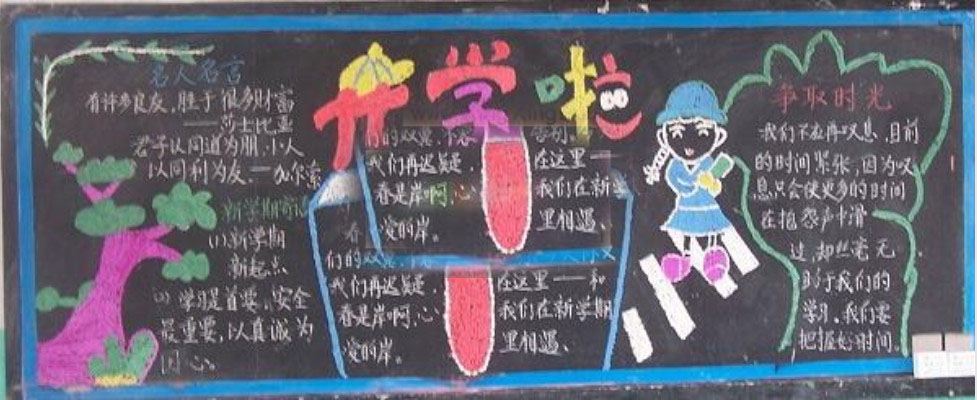 开学啦
名人名言
有许多良友，胜于很多财富
——莎士比亚
君子以同道为朋，小人
以同利为友。——
新学期寄语
(1)新学期
新起点
(2)学习是首要，安全
最重要，以真诚为
同心。
们的双翼，
我们再迟疑，
春是岸啊，心
爱的岸。
在这里一
我们在新学
里相遇、
们的双翼，
我们再迟疑，
春是岸啊，心
爱的岸。
在这里——和
我们在新学期
里相遇、
争取时光
我们不在再叹息，目前
的时间紧张，因为叹
息只会使更多的时间
在抱怨声中滑
过，却丝毫无
助于我们的
学习，我们要
把握好时间。